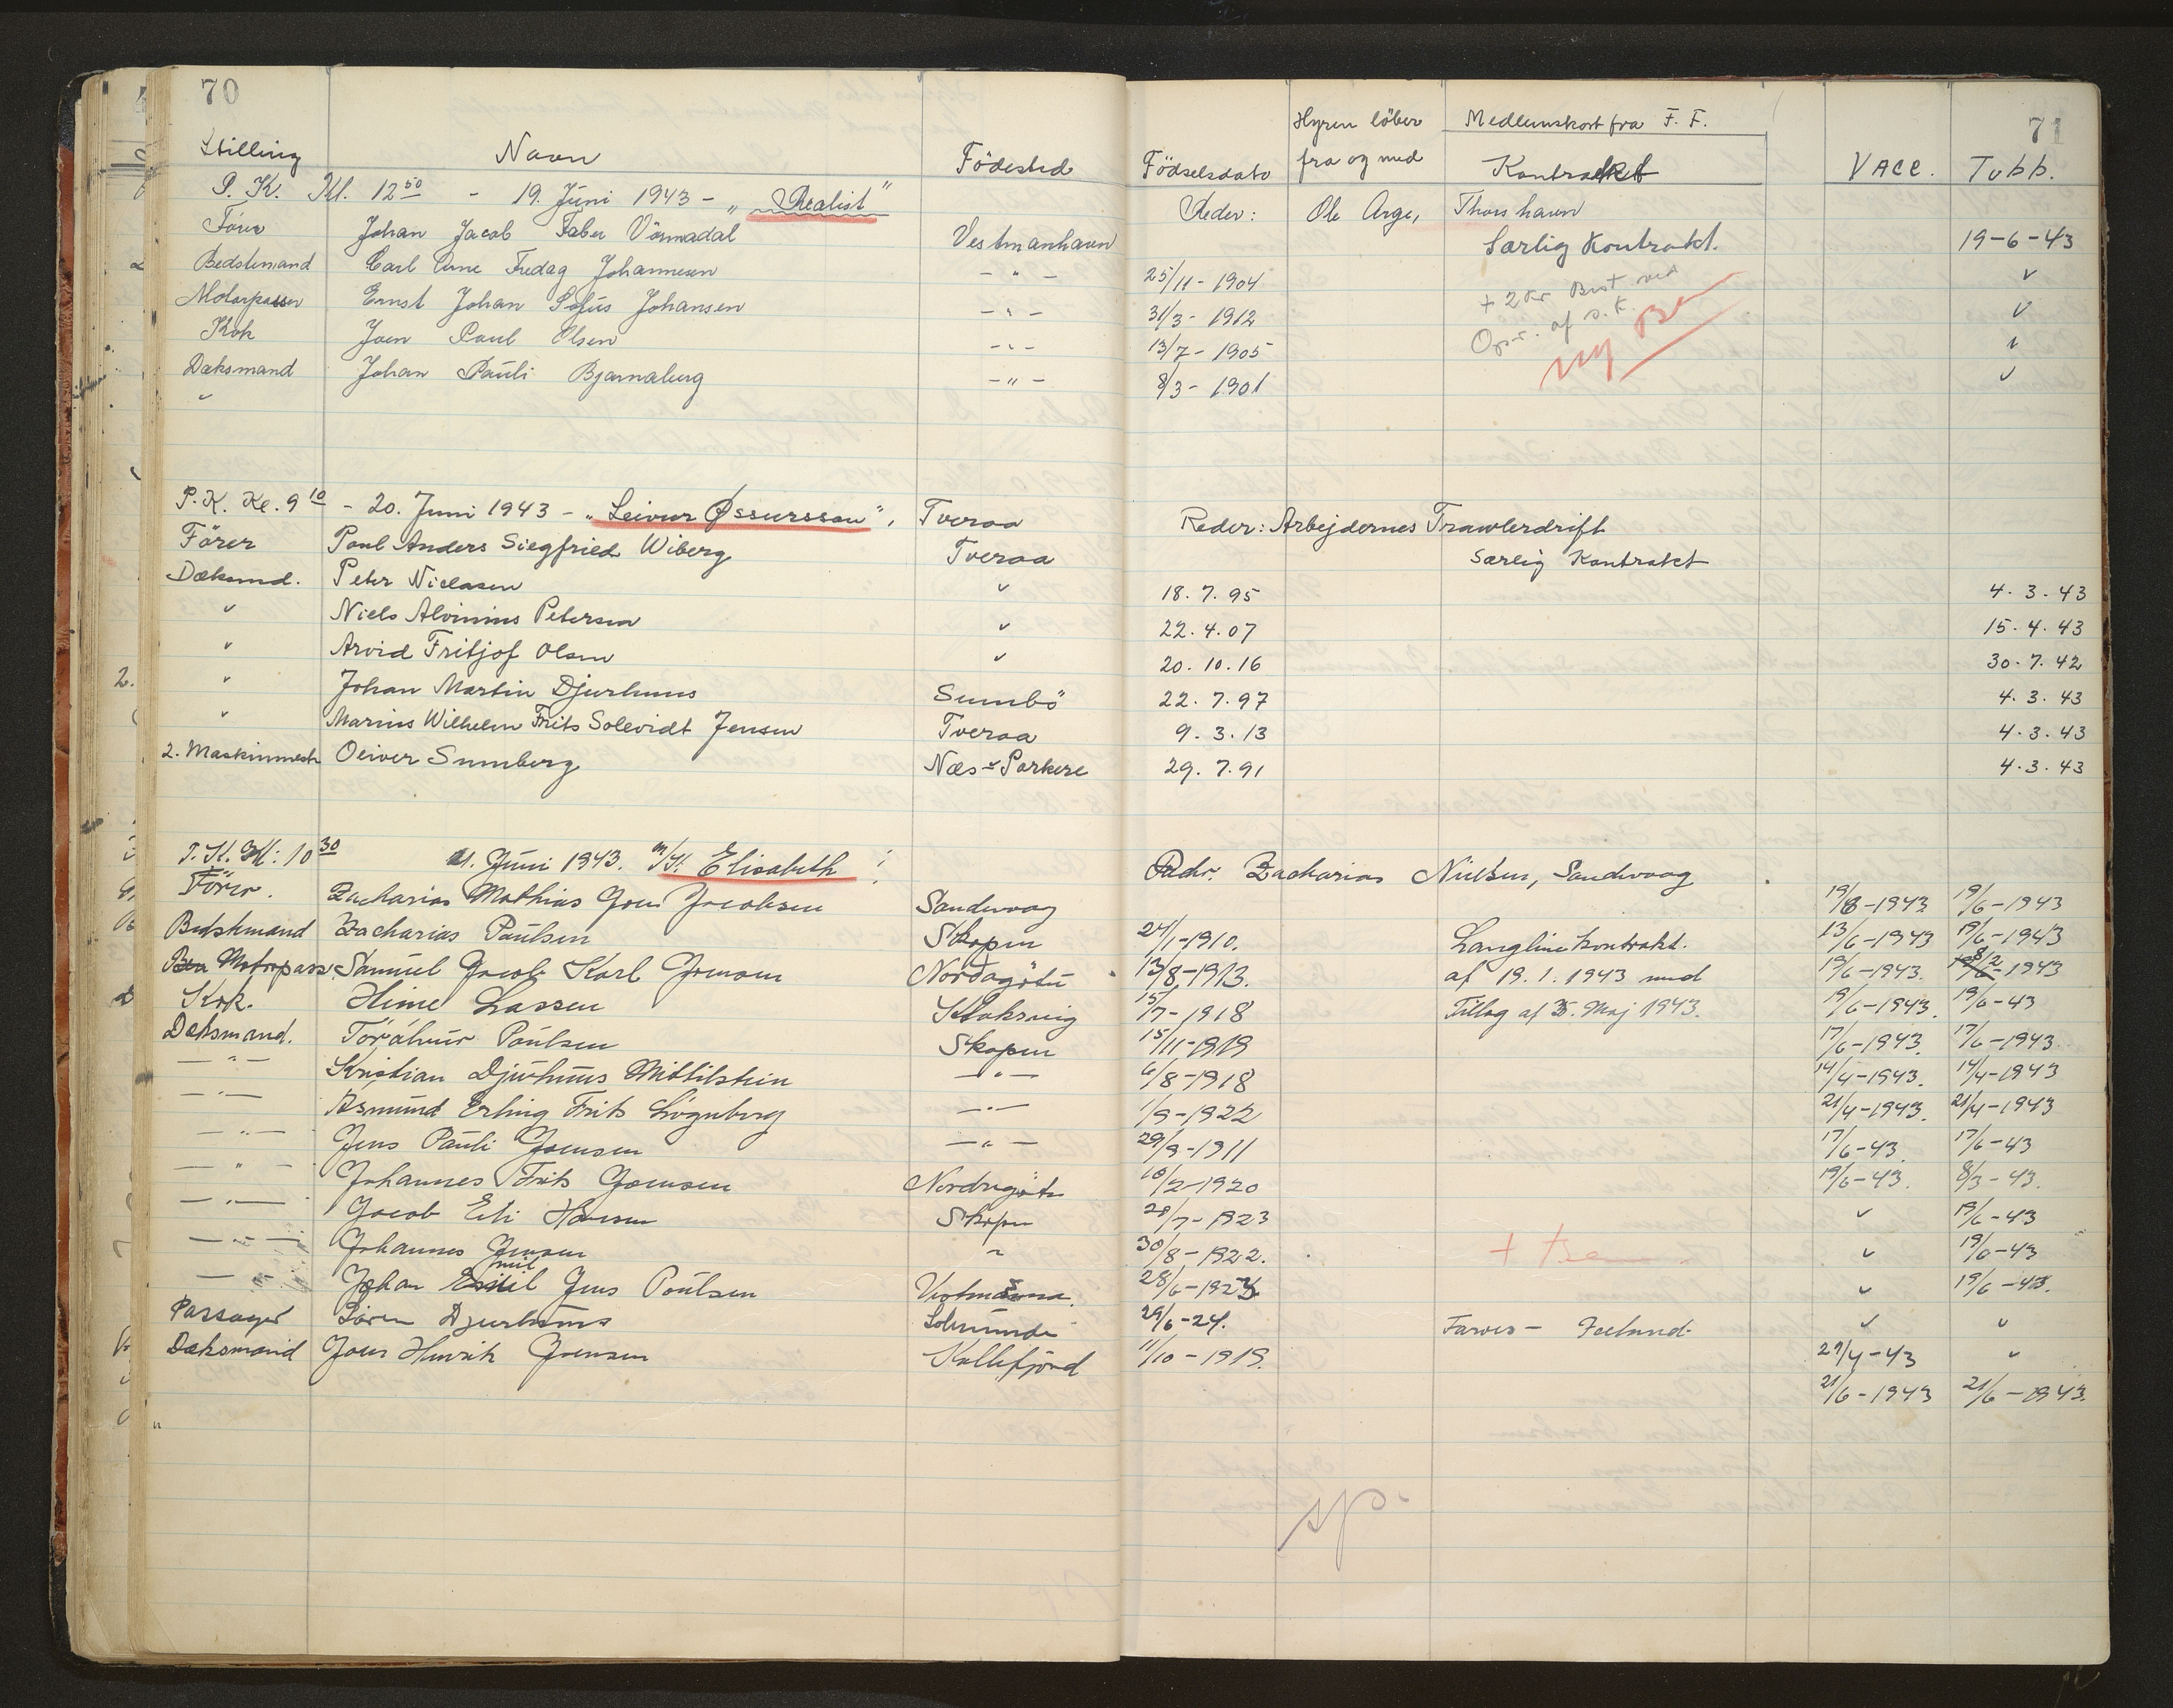 70
Stilling Navn Födested Födselsdato Hyren löber fra og med Medlemskort fra F. F. Kontrakt Vacc. Tubb. 71
P. K. Kl. 12 50 - 19. Juni 1943 - „Realist" Reder: Ole Arge, Thorshavn
Förer Johan Jacob Faber Vörmadal Vestmanhavn Særlig Kontrakt. 19-6-43
Bedstemand Carl Arne Fredag Johannesen - " - 25/11 - 1904 ✓
Motorpasser Ernst Johan Sofus Johansen - " - 31/3 - 1912 + 2 Kr ✓
Kok Joen Paul Olsen - " - 13/7 - 1905 af S. K. ✓
Dæksmand Johan Pauli Bjarnaberg - " - 8/3 - 1901 ny ✓
"
P. K. Kl. 9 10 - 20. Juni 1943 - „Leivur Øssursson", Tveraa Reder: Arbejdernes Trawlerdrift
Förer Poul Anders Siegfried Wiberg Tveraa Særlig Kontrakt
Dæksmd. Peter Niclasen " 18. 7. 95 4. 3. 43
" Niels Alvinius Petersen " 22. 4. 07 15. 4. 43
" Arvid Fritjof Olsen " 20. 10. 16 30. 7. 42
" Johan Martin Djurhuus Sumbö 22. 7. 97 4. 3. 43
" Marius Wilhelm Frits Solvidt Jensen Tveraa 9. 3. 13 4. 3. 43
2. Maskinmestr Oliver Sumberg Næs - Porkere 29. 7. 91 4. 3. 43
P. K. Kl: 10 30 21. Juni 1943. M/K. Elisabeth : Redr. Zacharias Nielsen, Sandvaag
Förer. Zacharias Mathias Joen Jacobsen Sandvaag 19/6-1943 19/6-1943
Bedstemand Zacharias Paulsen Skopun 24/1-1910. Langline kontrakt. 13/6-1943 19/6-1943
Motorpass. Samuel Jacob Karl Joensen Nordagötu 13/8-1913. af 19. 1. 1943 med 19/6-1943. 8/2-1943
Kok. Hime Lassen Klaksvig 15/7-1918 Tillæg af 25. Maj 1943. 19/6-1943. 19/6-43
Dæksmand. Tórálvur Poulsen Skopun 15/11-1919 17/6-1943. 17/6-1943.
- " - Kristian Djurhuus Mittilstein - " - 6/8-1918 14/4-1943. 14/4-1943
- " - Asmund Erling Frits Lögnberg - " - 1/9-1922 21/4-1943. 21/4-1943
- " - Jens Pauli Joensen - " - 29/9-1911 17/6-43. 17/6-43
- " - Johannes Frits Joensen Nordragöte 10/2-1920 19/6-43. 8/3-43.
- " - Jacob Eli Hansen Skopun 28/7-1923 ✓ 19/6-43
- " - Johannes Jensen " 30/8-1922. ✓ 19/6-43
- " - Johan Emil Jens Poulsen 28/6-1923 ✓ 19/6-43.
Passager Sören Djurhuus 29/6-24. Færoes - Iceland. ✓ "
Dæksmand Joen Henrik Joensen Kollefjord 11/10-1919. 27/4-43 "
21/6-1943 21/6-1943.